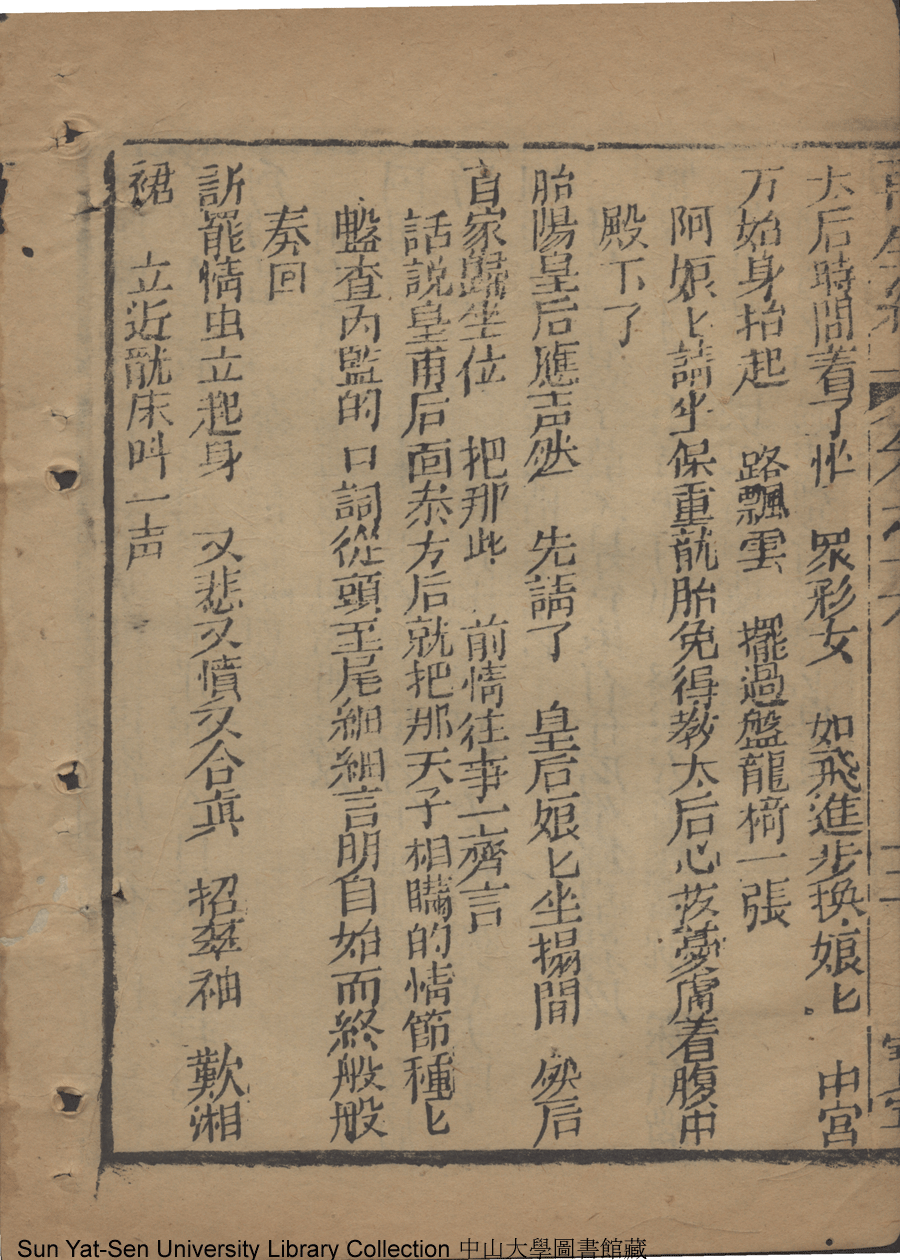 太后時間着了忙　眾彩女　如飛進步换娘匕　中宮
万始身抬起　路飄雲　擺過盤龍椅一張
阿娘匕請坐保重龍胎免得教太后心孩憂慮着腹中
殿下了
胎陽皇后應声然　先請了　皇后娘匕坐搨間　然后
自家歸坐位　把那此　前情往事一齊言
話說皇甫后面奏方后就把那天子相瞞的情節種匕
盤查內監的口詞從頭至尾細細言明自始而終般般
奏回
訴罷情虫立起身　又悲又憤又含嗔　招翠袖　歎湘
裙　立近龍床叫一声
Sun Yat-Sen University Library Collection 中山大學圖書館藏